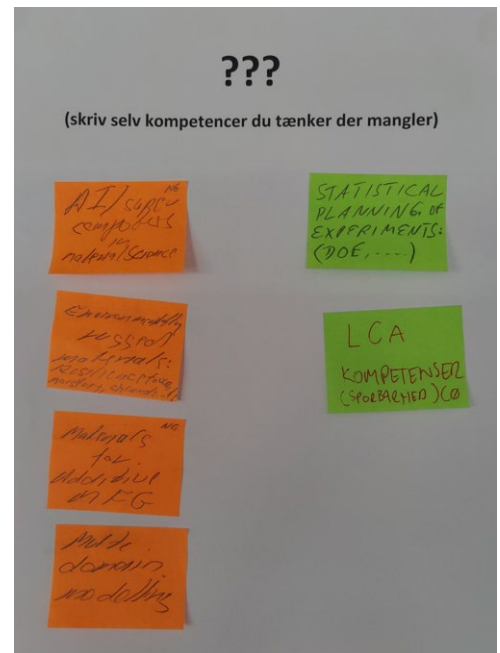 ???
(skriv selv kompetencer du tænker der mangler)
NG
AI/super
computers
in
material science
Environmentally
materials:
moisture,
NG
Materials
for
additive
MFG
Multi
domain
modelling
STATISTICAL
PLANNING of
EXPERIMENTS:
(DOE, .....)
LCA
KOMPETENSER
(SPORBARHED)